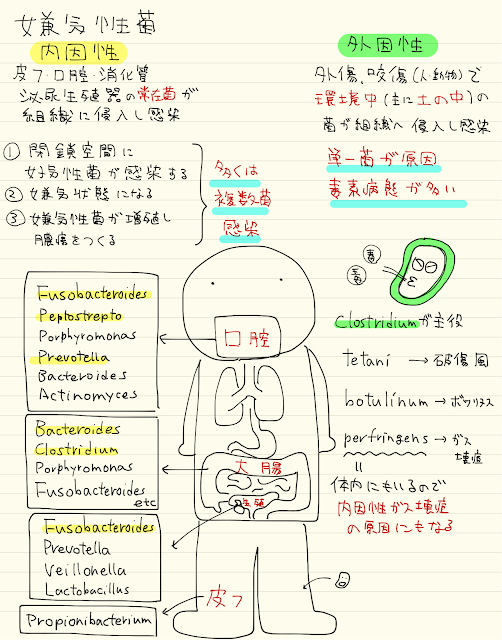 嫌気性菌
内因性
皮フ・口腔・消化管
泌尿生殖器の常在菌が
組織に侵入し感染
① 閉鎖空間に
好気性菌が感染する
② 嫌気状態になる
③ 嫌気性菌が増殖し
膿瘍をつくる
多くは
複数菌
感染
外因性
外傷、咬傷(人・動物)で
環境中(主に土の中)の
菌が組織へ侵入し感染
単一菌が原因
毒素病態が多い
毒
毒
Clostridiumが主役
tetani → 破傷風
botulinum → ボツリヌス
perfringens → ガス
壊疽
体内にもいるので
内因性ガス壊疽
の原因にもなる
口腔
Fusobacteroides
Peptostrepto
Porphyromonas
Prevotella
Bacteroides
Actinomyces
大腸
Bacteroides
Clostridium
Porphyromonas
Fusobacteroides
etc
生殖
Fusobacteroides
Prevotella
Veillonella
Lactobacillus
皮フ
Propionibacterium